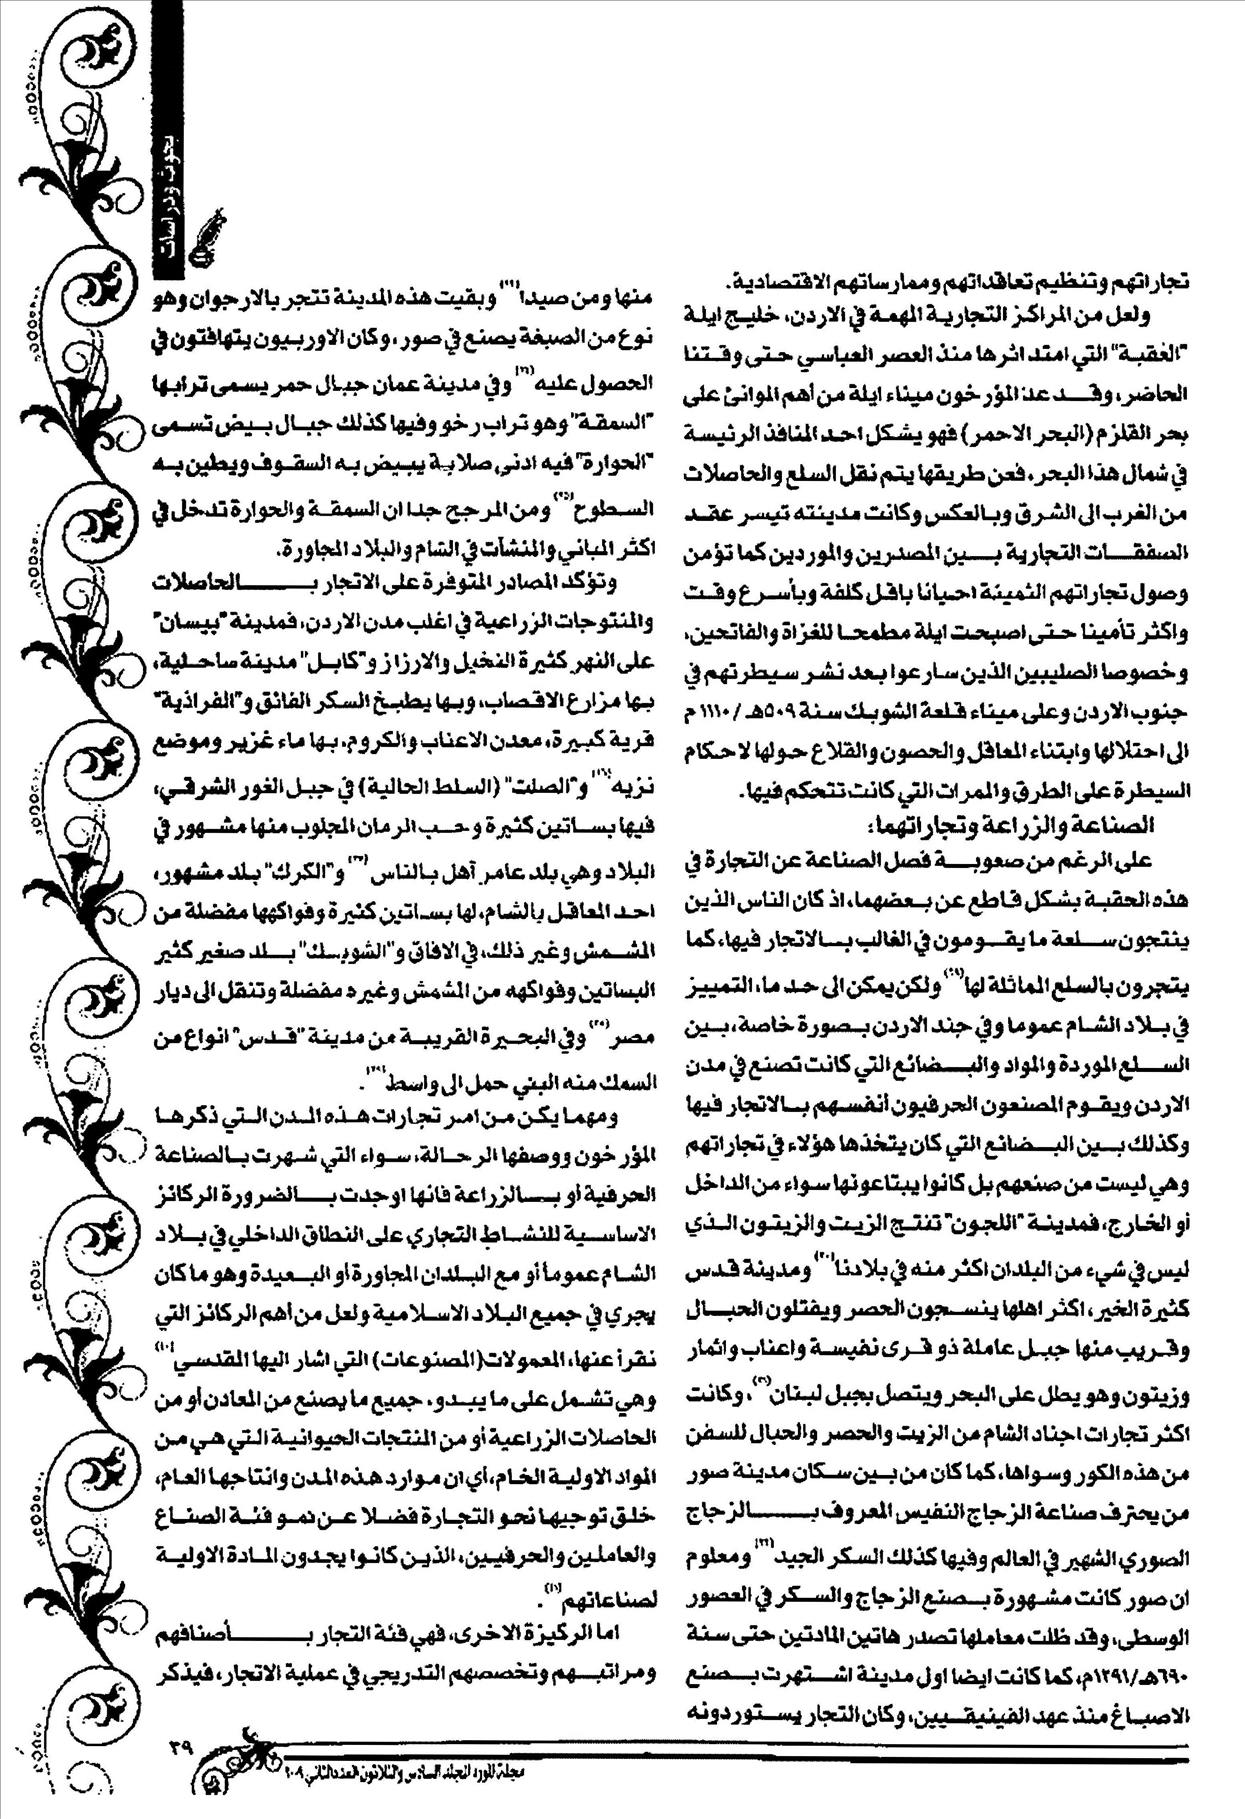 بحوث ودراسات
تجاراتهم وتنظيم تعاقداتهم وممارساتهم الاقتصادية.
ولعل من المراكز التجارية المهمة في الاردن، خليج ايلة
"العقبة" التي امتد اثرها منذ العصر العباسي حتى وقتنا
الحاضر، وقد عد المؤرخون ميناء ايلة من أهم الموانئ على
بحر القلزم (البحر الاحمر) فهو يشكل احد المنافذ الرئيسة
في شمال هذا البحر، فعن طريقها يتم نقل السلع والحاصلات
من الغرب الى الشرق وبالعكس وكانت مدينته تيسر عقد
الصفقات التجارية بين المصدرين والموردين كما تؤمن
وصول تجاراتهم الثمينة احيانا باقل كلفة وبأسرع وقت
واكثر تأمينا حتى اصبحت ايلة مطمحا للغزاة والفاتحين،
وخصوصا الصليبين الذين سارعوا بعد نشر سيطرتهم في
جنوب الاردن وعلى ميناء قلعة الشوبك سنة ٥٠٩هـ /١١١٠ م
الى احتلالها وابتناء المعاقل والحصون والقلاع حولها لاحكام
السيطرة على الطرق والممرات التي كانت تتحكم فيها.
الصناعة والزراعة وتجاراتهما:
على الرغم من صعوبة فصل الصناعة عن التجارة في
هذه الحقبة بشكل قاطع عن بعضهما، اذ كان الناس الذين
ينتجون سلعة ما يقومون في الغالب بالاتجار فيها، كما
يتجرون بالسلع المماثلة لها(٢٩) ولكن يمكن الى حد ما، التمييز
في بلاد الشام عموما وفي جند الاردن بصورة خاصة، بين
السلع الموردة والمواد والبضائع التي كانت تصنع في مدن
الاردن ويقوم المصنعون الحرفيون أنفسهم بالاتجار فيها
وكذلك بين البضائع التي كان يتخذها هؤلاء في تجاراتهم
وهي ليست من صنعهم بل كانوا يبتاعونها سواء من الداخل
أو الخارج، فمدينة "اللجون" تنتج الزيت والزيتون الذي
ليس في شيء من البلدان اكثر منه في بلادنا(٣٠) ومدينة قدس
كثيرة الخير، اكثر اهلها ينسجون الحصر ويفتلون الحبال
وقريب منها جبل عاملة ذو قرى نفيسة واعناب واثمار
وزيتون وهو يطل على البحر ويتصل بجبل لبنان(٣١)، وكانت
اكثر تجارات اجناد الشام من الزيت والحصر والحبال للسفن
من هذه الكور وسواها، كما كان من بين سكان مدينة صور
من يحترف صناعة الزجاج النفيس المعروف بالزجاج
الصوري الشهير في العالم وفيها كذلك السكر الجيد(٣٢) ومعلوم
ان صور كانت مشهورة بصنع الزجاج والسكر في العصور
الوسطى، وقد ظلت معاملها تصدر هاتين المادتين حتى سنة
٦٩٠هـ/١٢٩١م، كما كانت ايضا اول مدينة اشتهرت بصنع
الاصباغ منذ عهد الفينيقيين، وكان التجار يستوردونه
منها ومن صيدا وبقيت هذه المدينة تتجر بالارجوان وهو
نوع من الصبغة يصنع في صور، وكان الاوربيون يتهافتون في
الحصول عليه وفي مدينة عمان جبال حمر يسمى ترابها
"السمقة" وهو تراب رخو وفيها كذلك جبال بيض تسمى
"الحوارة" فيه ادنى صلابة يبيض به السقوف ويطين به
السطوح(٣٥) ومن المرجح جدا ان السمقة والحوارة تدخل في
اكثر المباني والمنشآت في الشام والبلاد المجاورة.
وتؤكد المصادر المتوفرة على الاتجار بالحاصلات
والمنتوجات الزراعية في اغلب مدن الاردن، فمدينة "بيسان"
على النهر كثيرة النخيل والارزاز و"كابل" مدينة ساحلية،
بها مزارع الاقصاب، وبها يطبخ السكر الفائق و"الفراذية"
قرية كبيرة، معدن الاعناب والكروم، بها ماء غزير وموضع
نزيه(٣٦) و"الصلت" (السلط الحالية) في جبل الغور الشرقي،
فيها بساتين كثيرة وحب الرمان المجلوب منها مشهور في
البلاد وهي بلد عامر آهل بالناس(٣٧) و"الكرك" بلد مشهور،
احد المعاقل بالشام، لها بساتين كثيرة وفواكهها مفضلة من
المشمش وغير ذلك، في الافاق و"الشوبك" بلد صغير كثير
البساتين وفواكهه من المشمش وغيره مفضلة وتنقل الى ديار
مصر(٣٨) وفي البحيرة القريبة من مدينة "قدس" انواع من
السمك منه البني حمل الى واسط(٣٩).
ومهما يكن من امر تجارات هذه المدن التي ذكرها
المؤرخون ووصفها الرحالة، سواء التي شهرت بالصناعة
الحرفية أو بالزراعة فانها اوجدت بالضرورة الركائز
الاساسية للنشاط التجاري على النطاق الداخلي في بلاد
الشام عموما أو مع البلدان المجاورة أو البعيدة وهو ما كان
يجري في جميع البلاد الاسلامية ولعل من أهم الركائز التي
نقرأ عنها، المعمولات (المصنوعات) التي اشار اليها المقدسي(٤٠)
وهي تشمل على ما يبدو، جميع ما يصنع من المعادن أو من
الحاصلات الزراعية أو من المنتجات الحيوانية التي هي من
المواد الاولية الخام، أي ان موارد هذه المدن وانتاجها العام،
خلق توجيها نحو التجارة فضلا عن نمو فئة الصناع
والعاملين والحرفيين، الذين كانوا يجدون المادة الاولية
لصناعاتهم(٤١).
اما الركيزة الاخرى، فهي فئة التجار بأصنافهم
ومراتبهم وتخصصهم التدريجي في عملية الاتجار، فيذكر
٣٩
مجلة المورد المجلد السادس والثلاثون العدد الثاني ٢٠٠٩